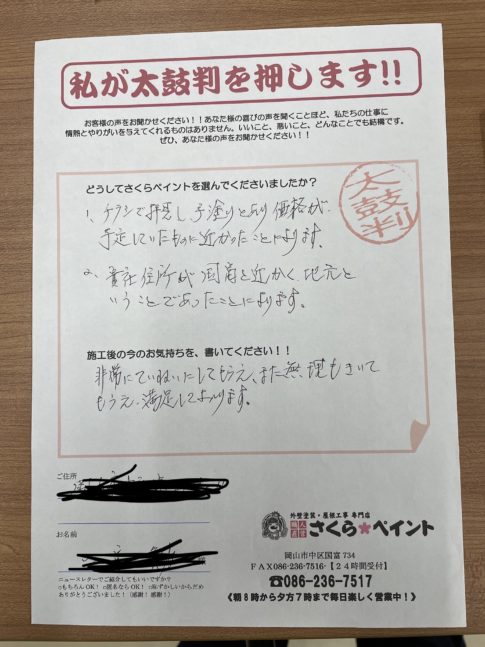 私が太鼓判を押します!!
お客様の声をお聞かせください!!あなた様の喜びの声を聞くことほど、私たちの仕事に
情熱とやりがいを与えてくれるものはありません。いいこと、悪いこと、どんなことでも結構です。
ぜひ、あなた様の声をお聞かせください!!
太鼓判
どうしてさくらペイントを選んでくださいましたか?
1、チラシで拝見し手塗りとあり価格が
予定していたものに近かったことによります。
2、貴社住所が国富と近かく地元と
いうことであったことによります。
施工後の今のお気持ちを、書いてください!!
非常にていねいにしてもらえ、また無理もきいて
もらえ、満足しております。
ご住所
お名前
ニュースレターでご紹介してもいいですか?
□もちろんOK! □匿名ならOK! □恥ずかしいからだめ
ありがとうございました!(感謝!感謝!)
外壁塗装・屋根工事 専門店
職人直営
さくら ペイント
岡山市中区国富734
FAX086-236-7516・【24時間受付】
☎086-236-7517
《朝8時から夕方7時まで毎日楽しく営業中!》